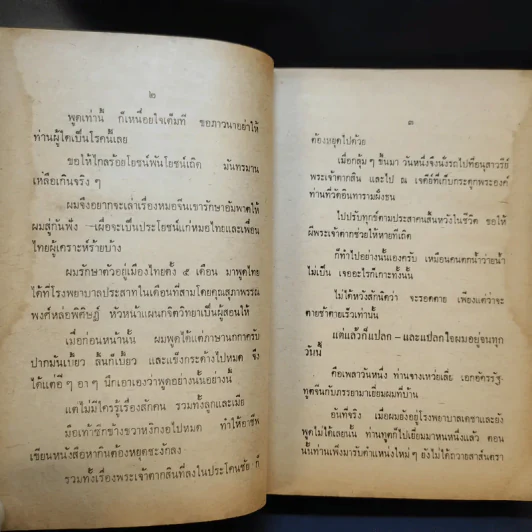 ๒
พูดเท่านี้ ก็เหนื่อยใจเต็มที ขอภาวนาอย่าให้
ท่านผู้ใดเป็นโรคนี้เลย
ขอให้ไกลร้อยโยชน์พันโยชน์เถิด มันทรมาน
เหลือเกินจริง ๆ
ผมจึงอยากจะเล่าเรื่องหมอจีนเขารักษาอัมพาตให้
ผมสู่กันฟัง -เผื่อจะเป็นประโยชน์แก่หมอไทยและเพื่อน
ไทยผู้เคราะห์ร้ายบ้าง
ผมรักษาตัวอยู่เมืองไทยตั้ง ๕ เดือน มาพูดไทย
ได้ที่โรงพยาบาลประสาทในเดือนที่สามโดยคุณสุภาพรรณ
พงศ์หล่อพิศิษฏ์ หัวหน้าแผนกจิตวิทยาเป็นผู้สอนให้
เมื่อก่อนหน้านั้น ผมพูดได้แต่ภาษานกกาครับ
ปากมันเบี้ยว ลิ้นก็เบี้ยว และแข็งกระด้างไปหมด จึง
ได้แต่อี ๆ อา ๆ นึกเอาเองว่าพูดอย่างนั้นอย่างนี้
แต่ไม่มีใครรู้เรื่องสักคน รวมทั้งลูกและเมีย
มือเท้าซีกข้างขวาหงิกงอไปหมด ทำให้อาชีพ
เขียนหนังสือหากินต้องหยุดชะงักลง
รวมทั้งเรื่องพระเจ้าตากสินที่ลงใน ก็
๓
ต้องหยุดไปด้วย
เมื่อกลุ้ม ๆ ขึ้นมา วันหนึ่งจึงนั่งรถไปที่อนุสาวรีย์
พระเจ้าตากสิน และไป ณ เจดีย์ที่เก็บกระดูกพระองค์
ท่านที่วัดอินทารามฝั่งธน
ไปปรับทุกข์ตามประสาคนสิ้นหวังในชีวิต ขอให้
ผีพระเจ้าตากช่วยให้หายทีเถิด
ก็ทำไปอย่างนั้นเองครับ เหมือนคนตกน้ำว่ายน้ำ
ไม่เป็น เจออะไรก็เกาะทั้งนั้น
ไม่ได้หวังสักนิดว่า จะรอดตาย เพียงแต่ว่าจะ
ตายช้าตายเร็วเท่านั้น
แต่แล้วก็แปลก – และแปลกใจผมอยู่จนทุก
วันนี้
คือเพลาวันหนึ่ง ท่านชางเหวย์เลี่ย เอกอัครรัฐ-
ทูตจีนกับภรรยามาเยี่ยมผมที่บ้าน
อันที่จริง เมื่อผมยังอยู่โรงพยาบาลเดชาและยัง
พูดไม่ได้เลยนั้น ท่านทูตก็ไปเยี่ยมมาหนหนึ่งแล้ว ตอน
นั้นท่านเพิ่งมารับตำแหน่งใหม่ ๆ ยังไม่ได้ถวายสาส์นตรา